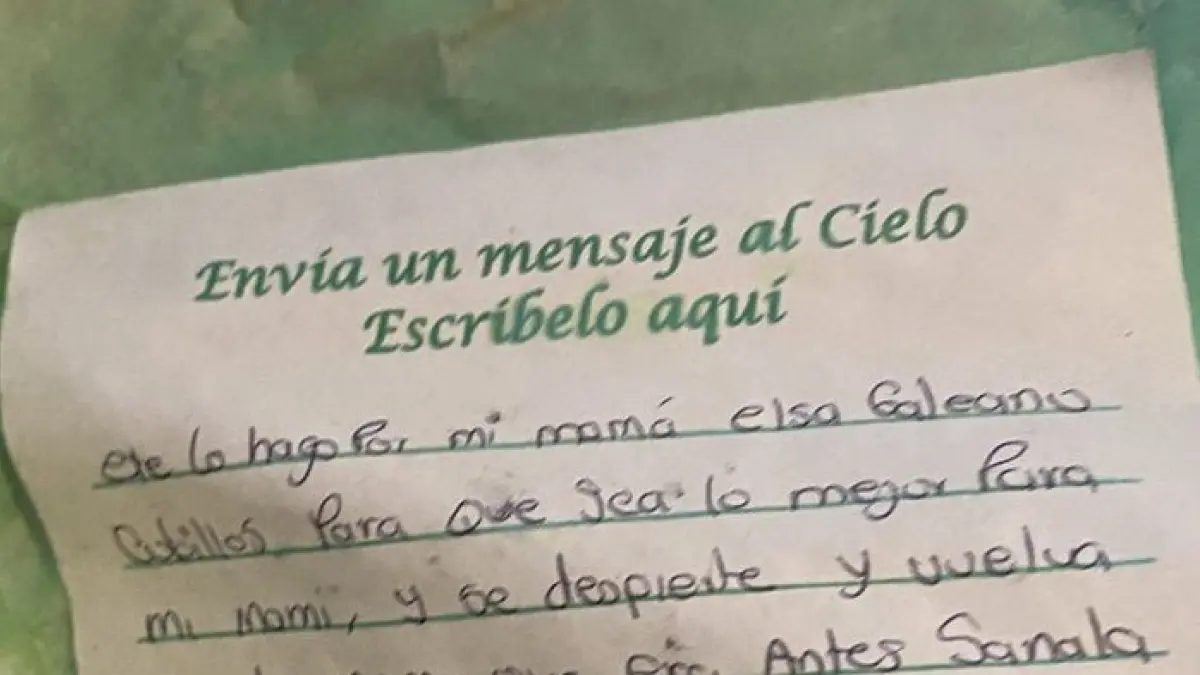 Envía un mensaje al Cielo
Escríbelo aquí
este lo hago Por mi mamá elsa Galeano
Para que sea lo mejor Para
mi mami, y se despierte y vuelva
Antes Sanala